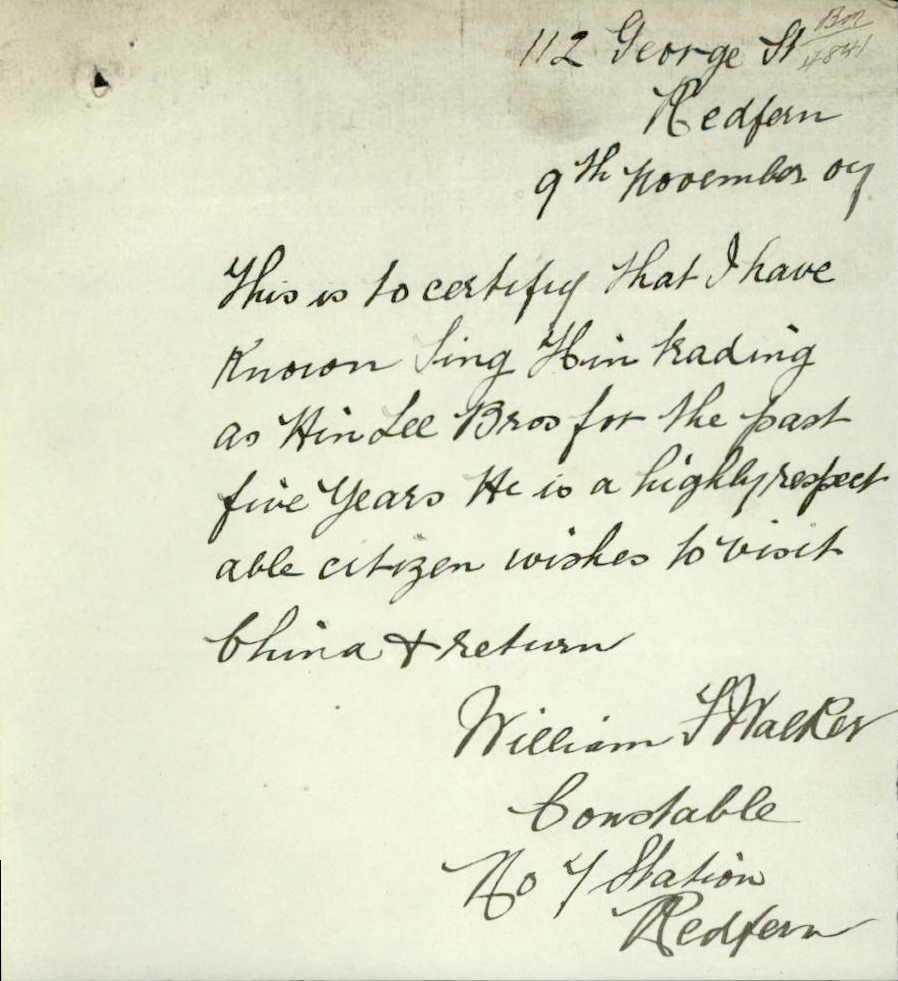 112 George St
Bn
4841
Redfern
9th November 07
This is to certify that I have
Known Sing Hin trading
as Hin Lee Bros for the past
five Years He is a highly respect
able citizen wishes to visit
China & return
William F Walker
Constable
No 7 Station
Redfern